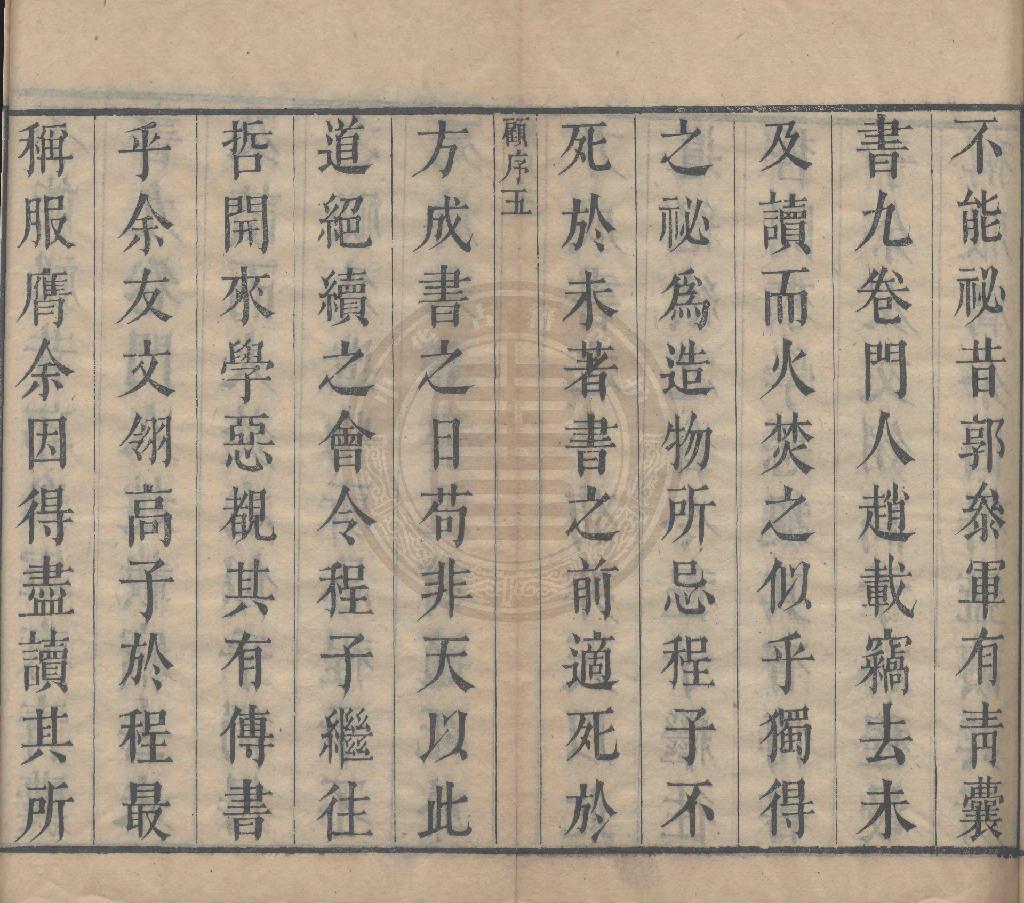 不能祕昔郭叅軍有靑囊
書九卷門人趙載竊去未
及讀而火焚之似乎獨得
之祕爲造物所忌程子不
死於未著書之前適死於
顧序五
方成書之日苟非天以此
道絕續之會令程子繼往
哲開來學惡覩其有傳書
乎余友文翎高子於程最
稱服膺余因得盡讀其所